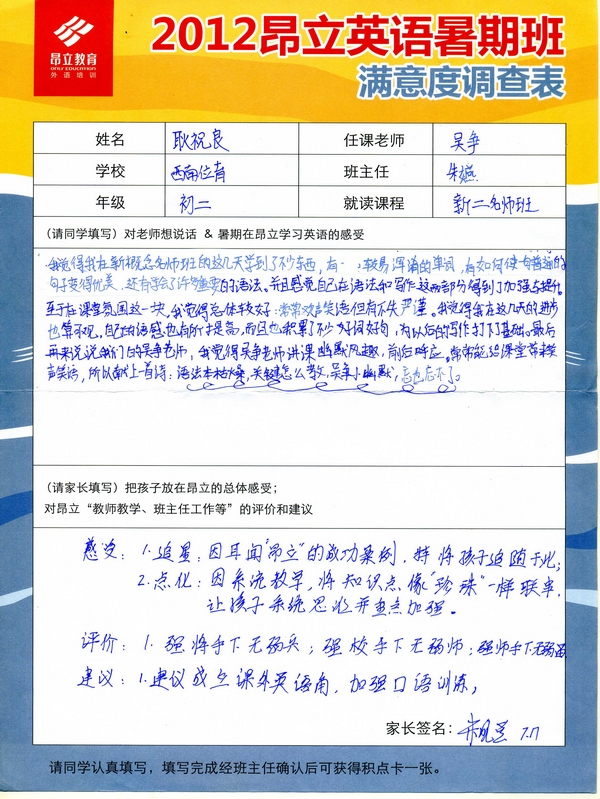 昂立教育
ONLY EDUCATION
外语培训
2012昂立英语暑期班
满意度调查表
姓名 耿祝良 任课老师 吴争
学校 西南位育 班主任 朱燕
年级 初二 就读课程 新二名师班
(请同学填写)对老师想说话 & 暑期在昂立学习英语的感受
我觉得我在新概念名师班的这几天学到了不少东西,有 较易混淆的单词,有如何使一句普通的
句子变得优美,还有学会了许多重要的语法,并且感觉自己在语法和写作这两部分得到了加强与提升。
至于在课堂氛围这一块,我觉得总体较好:常常欢声笑语但有不失严谨。我觉得我在这几天的进步
也算不小,自己的语感也有所提高,而且也积累了不少好词好句,为以后的写作打下了基础。最后
再来说说我们的吴争老师,我觉得吴争老师讲课幽默风趣,前后呼应,常常能给课堂带来欢
声笑语,所以献上一首诗:语法本枯燥,关键怎么教,吴争小幽默,忘也忘不了。
(请家长填写)把孩子放在昂立的总体感受;
对昂立“教师教学、班主任工作等”的评价和建议
感受:1.追星:因耳闻“昂立”的成功案例,特将孩子追随于此;
2.点化:因系统教学,将知识点像“珍珠”一样联串,
让孩子系统思 并 点加强。
评价:1.强将手下无弱兵;强校手下无弱师;强师手下无弱
建议:1.建议成立课外英语角,加强口语训练;
家长签名: 7.17
请同学认真填写,填写完成经班主任确认后可获得积点卡一张。